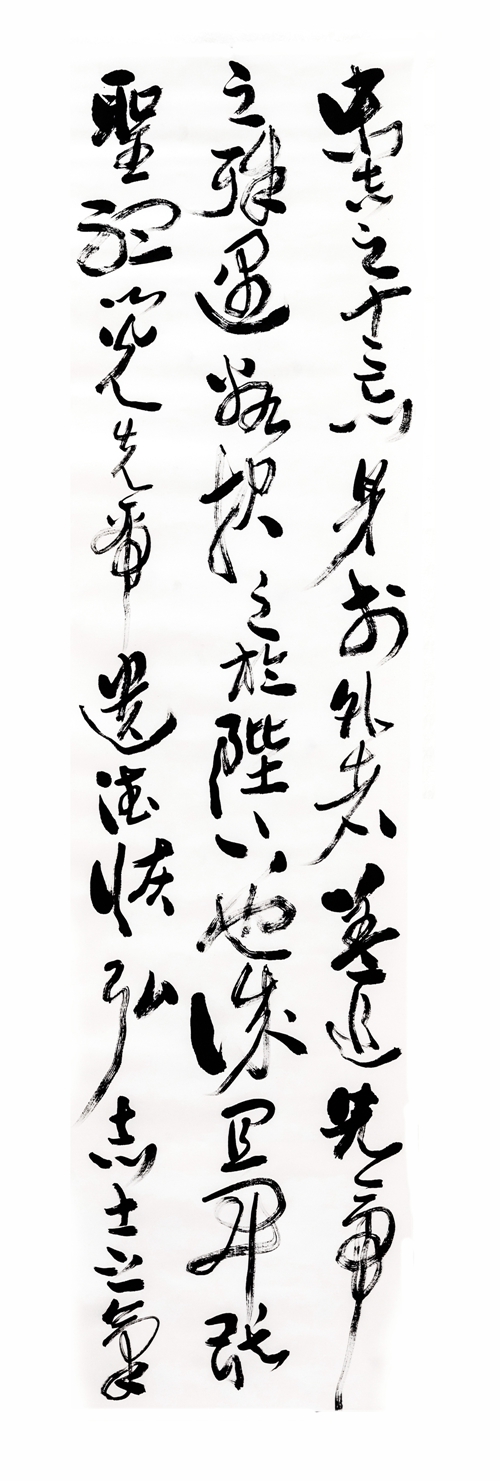 忠志之士忘身於外者蓋追先帝
之殊遇欲報之於陛下也誠宜開張
聖聽以光先帝遺德恢弘志士之氣